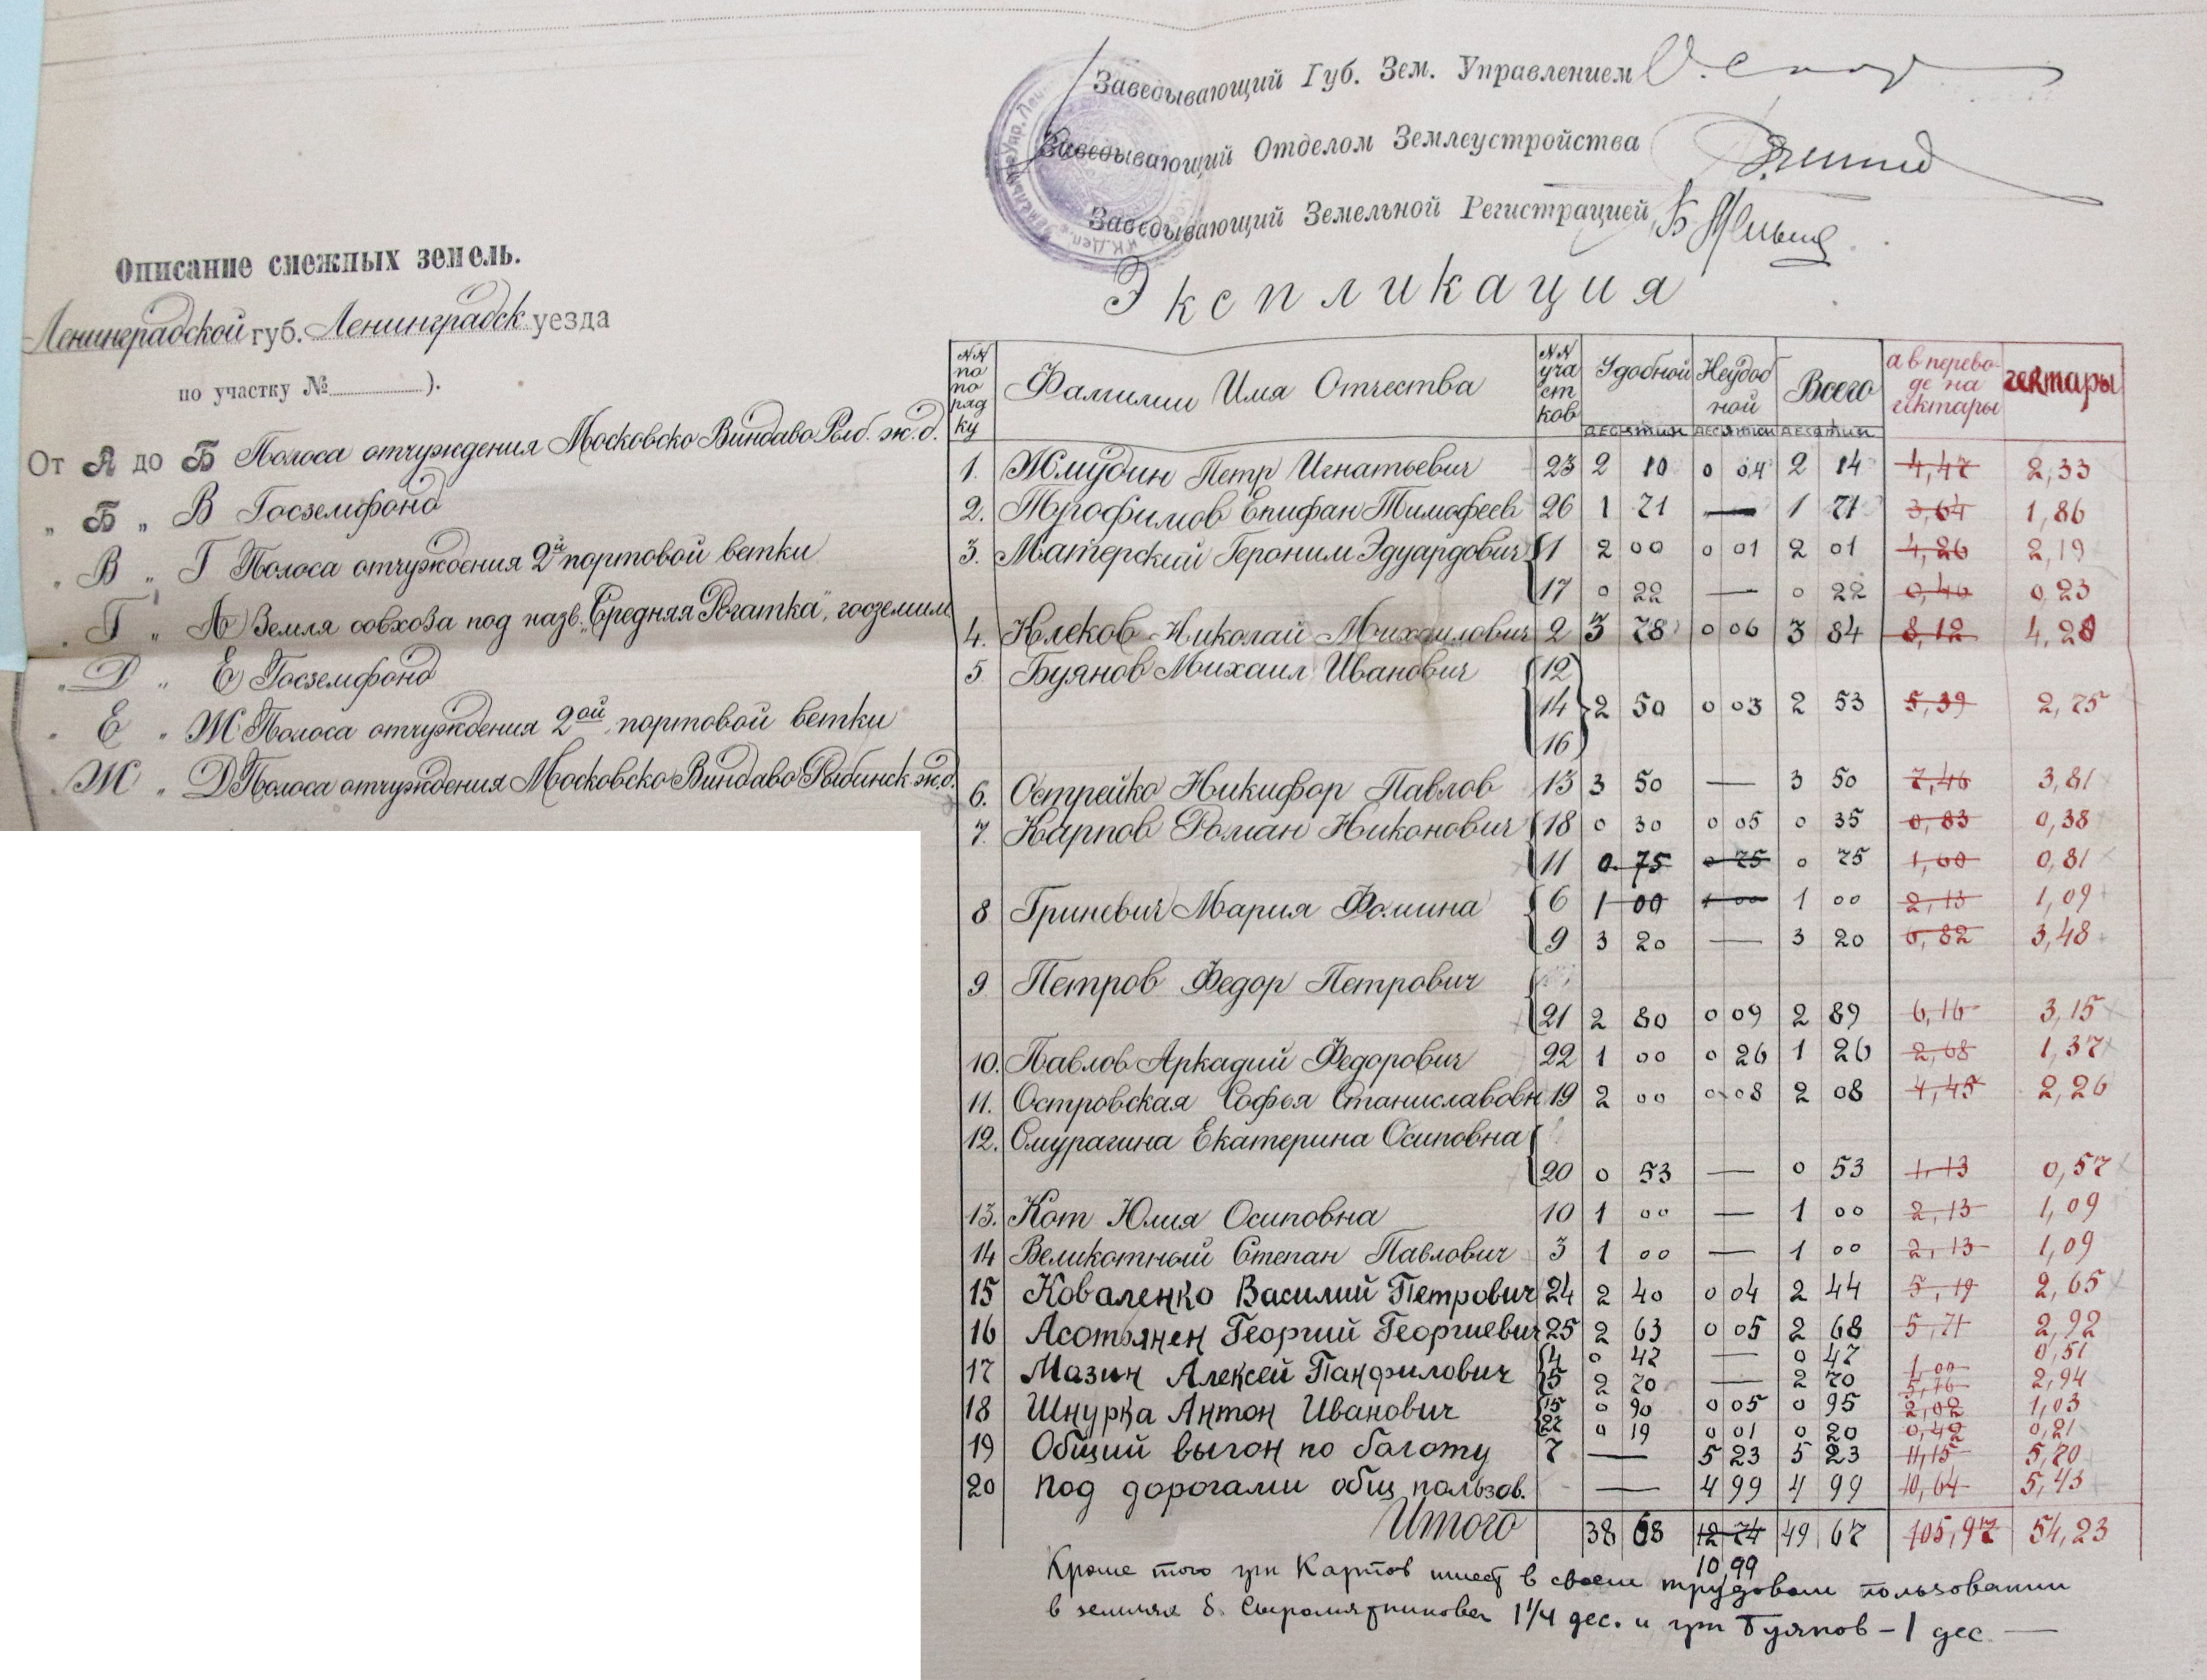 Заведывающий Губ. Зем. Управлением
Заведывающий Отделом Землеустройства
Заведывающий Земельной Регистрацией
Описание смежных земель.
Ленинградской губ. Ленинградск уезда
по участку № ).
От А до Б Полоса отчуждения Московско Виндаво Рыб. ж.д.
„ Б „ В Госземфонд
„ В „ Г Полоса отчуждения 2й портовой ветки
„ Г „ Д Земля совхоза под назв. „Средняя Рогатка",
„ Д „ Е Госземфонд
„ Е „ Ж Полоса отчуждения 2ой портовой ветки
„ Ж „ Д Полоса отчуждения Московско Виндаво Рыбинск ж.д.
Экспликация
NN по порядку Фамилии Имя Отчества NN участков Удобной Неудобной Всего а в переводе на гектары гектары
десятин десятин десятин
1. Жмудин Петр Игнатьевич 23 2 10 0 04 2 14 4,47 2,33
2. Трофимов Епифан Тимофеев 26 1 71 — 1 71 3,64 1,86
3. Матерский Героним Эдуардович 1 2 00 0 01 2 01 4,26 2,19
17 0 22 — 0 22 0,46 0,23
4. Клеков Николай Михаилович 2 3 78 0 06 3 84 8,12 4,20
5 Буянов Михаил Иванович 12
14 2 50 0 03 2 53 5,39 2,75
16
6. Острейко Никифор Павлов 13 3 50 — 3 50 7,46 3,81
7. Карпов Роман Никонович 18 0 30 0 05 0 35 0,83 0,38
11 0 75 0 75 0 75 1,60 0,81
8 Гриневич Мария Фомина 6 1 00 1 00 1 00 2,13 1,09
9 3 20 — 3 20 6,82 3,48
9 Петров Федор Петрович
21 2 80 0 09 2 89 6,16 3,15
10. Павлов Аркадий Федорович 22 1 00 0 26 1 26 2,68 1,37
11. Островская Софья Станиславовн 19 2 00 0 08 2 08 4,45 2,26
12. Смурагина Екатерина Осиповна
20 0 53 — 0 53 1,13 0,57
13. Кот Юлия Осиповна 10 1 00 — 1 00 2,13 1,09
14 Великотный Степан Павлович 3 1 00 — 1 00 2,13 1,09
15 Коваленко Василий Петрович 24 2 40 0 04 2 44 5,19 2,65
16 Асотьянен Георгий Георгиевич 25 2 63 0 05 2 68 5,71 2,92
17 Мазин Алексей Панфилович 4 0 47 — 0 47 1,00 0,51
5 2 70 — 2 70 5,76 2,94
18 Шнурка Антон Иванович 15 0 90 0 05 0 95 2,02 1,03
22 0 19 0 01 0 20 0,42 0,21
19 Общий выгон по болоту 7 — 5 23 5 23 11,15 5,70
20 Под дорогами общ пользов. - — 4 99 4 99 10,64 5,43
Итого 38 68 12 74 49 67 105,97 54,23
10 99
Кроме того грн Карпов имеет в своем трудовом пользовании
в землях б. Сыромятникова 1 1/4 дес. и грн Буянов – 1 дес —